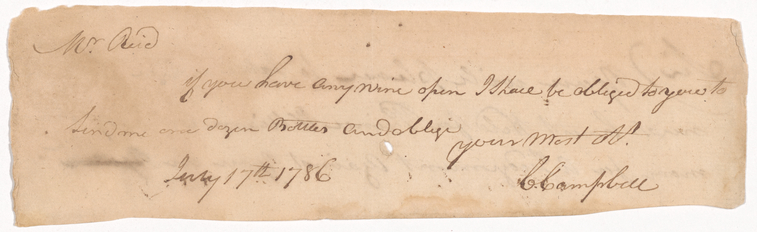 Mr Reid
if you have any wine open I shall be obliged to you to
Send me one dozen Bottles and oblige
your Most St
July 17th 1786
C Campbell